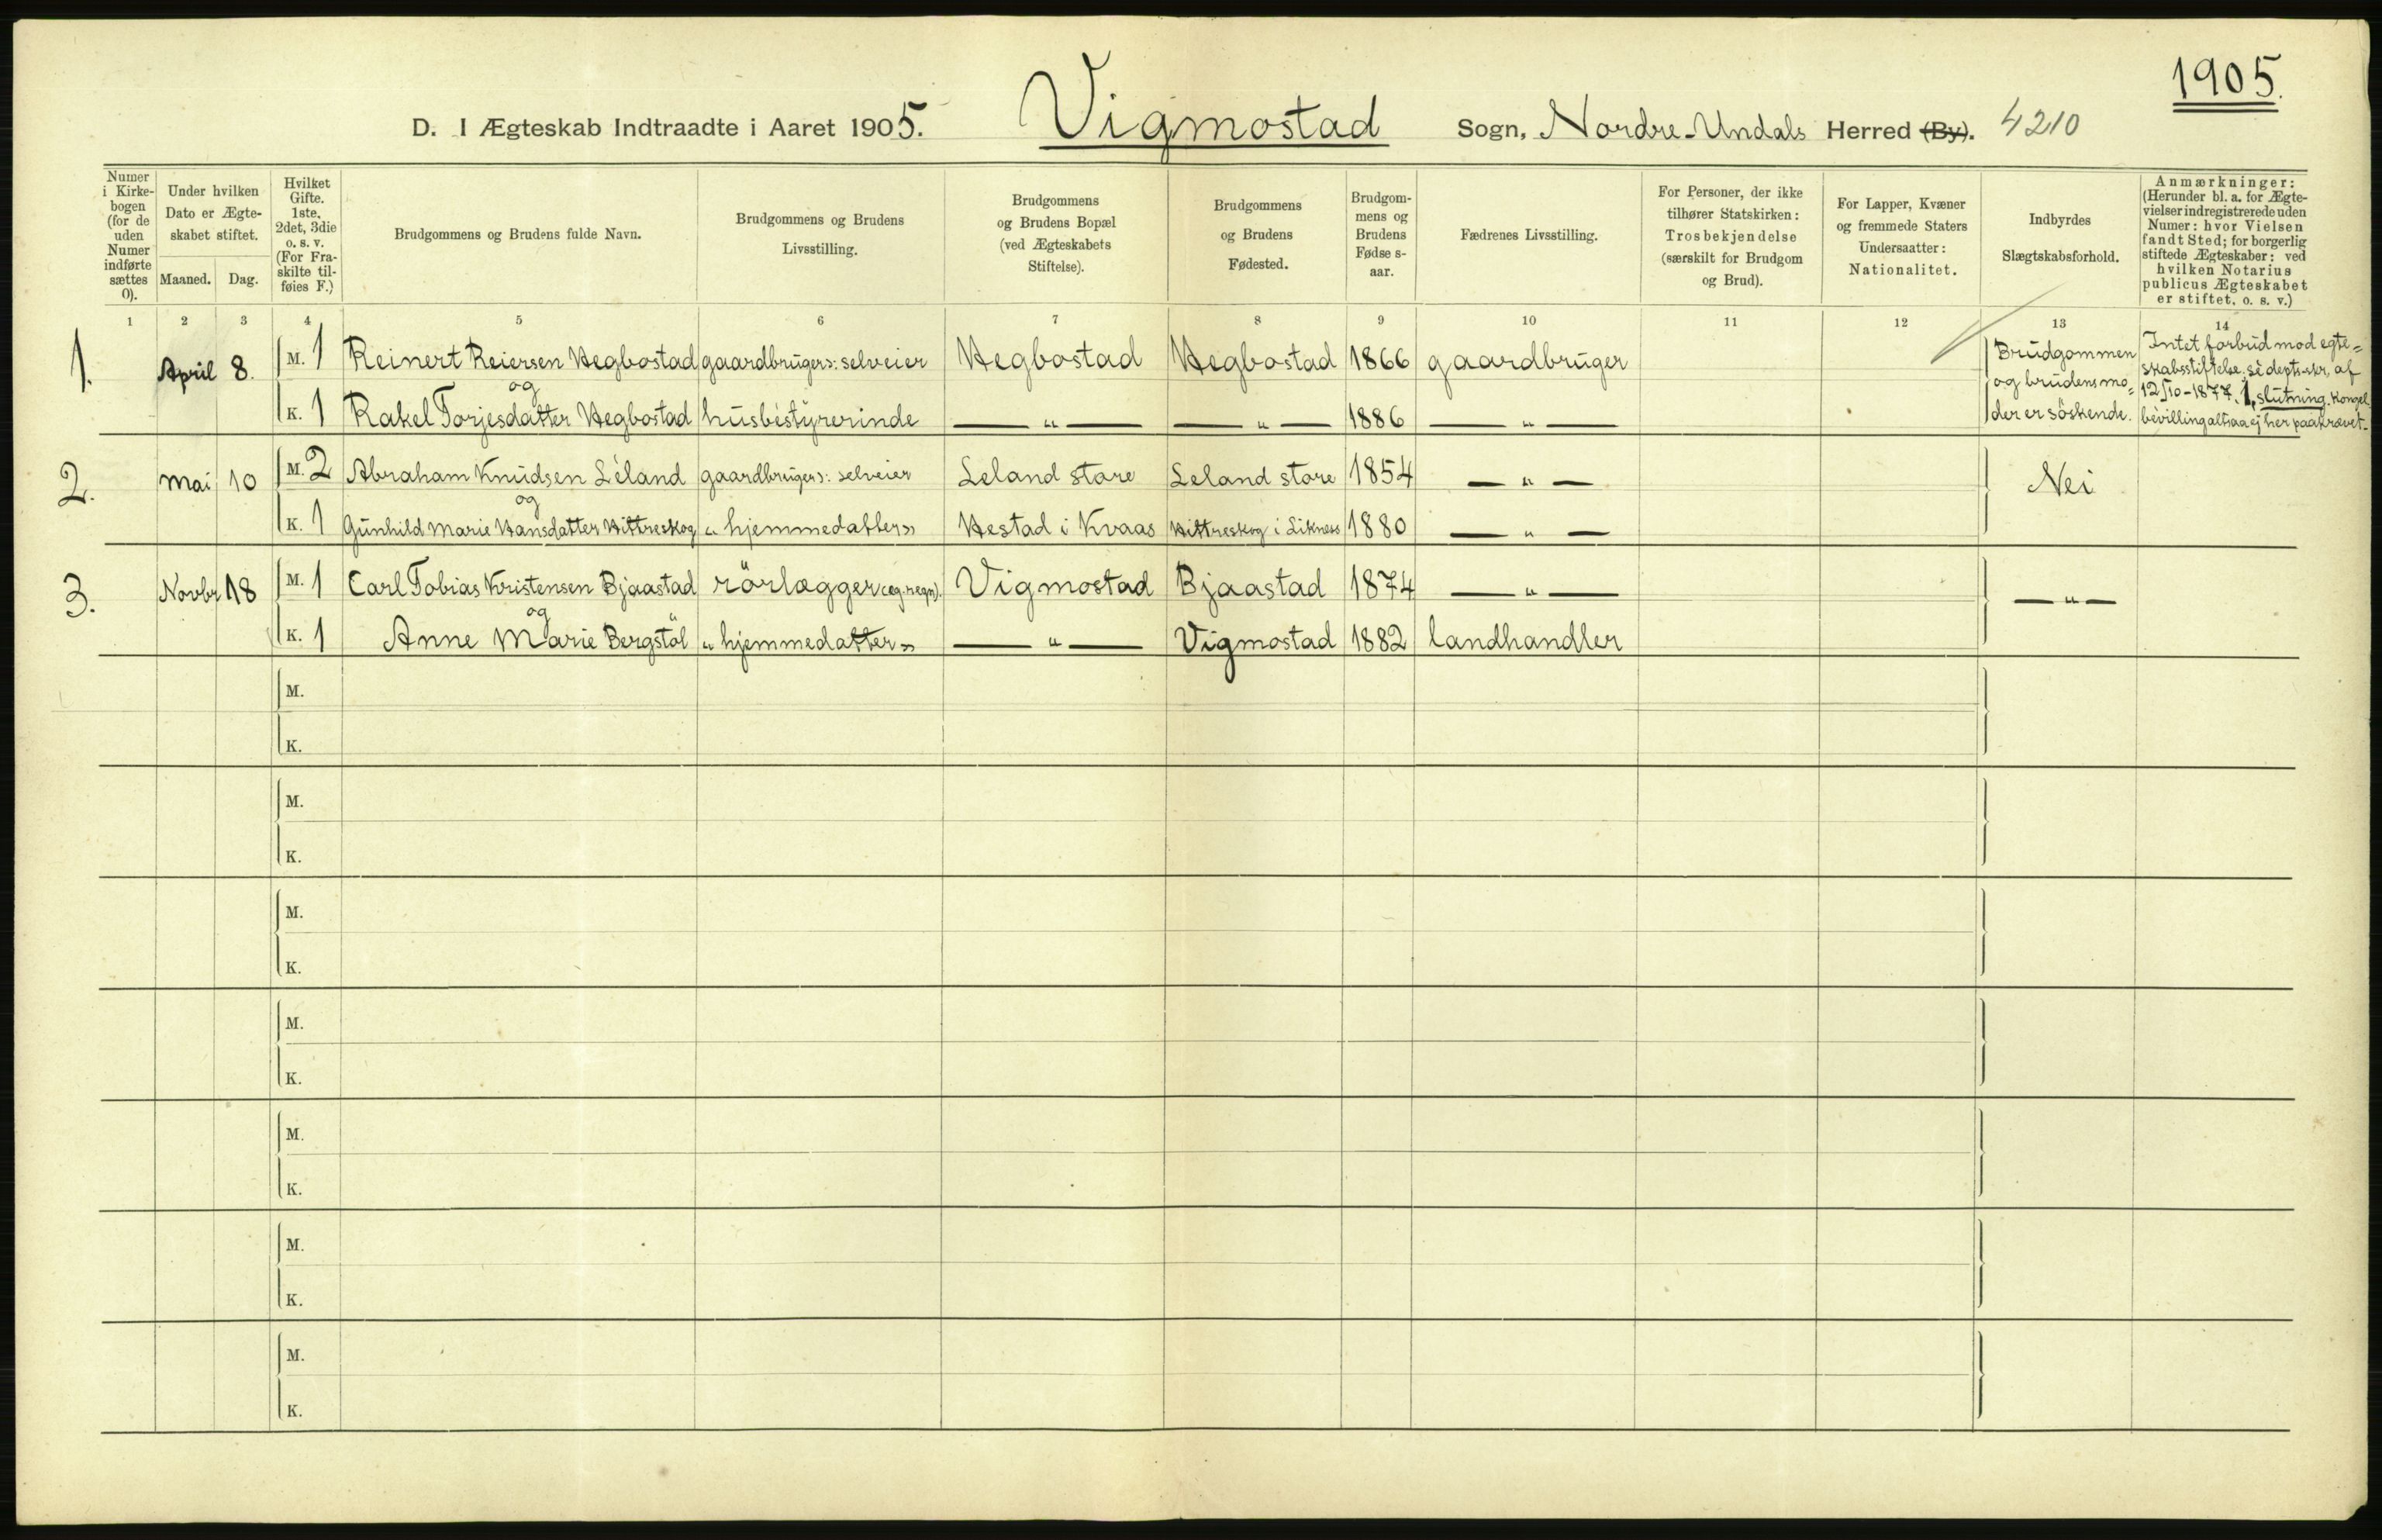 1905.
D. I Ægteskab Indtraadte i Aaret 1905. Vigmostad Sogn, Nordre-Undals Herred (By). 4210
Numer i Kirke-bogen (for de uden Numer indførte sættes 0).
Under hvilken Dato er Ægte-skabet stiftet.
Maaned. Dag.
Hvilket Gifte. 1ste, 2det, 3die o. s. v. (For Fra-skilte til-føies F.)
Brudgommens og Brudens fulde Navn.
Brudgommens og Brudens Livsstilling.
Brudgommens og Brudens Bopæl (ved Ægteskabets Stiftelse).
Brudgommens og Brudens Fødested.
Brudgom-mens og Brudens Fødse s-aar.
Fædrenes Livsstilling.
For Personer, der ikke tilhører Statskirken: Trosbekjendelse (særskilt for Brudgom og Brud).
For Lapper, Kvæner og fremmede Staters Undersaatter: Nationalitet.
Indbyrdes Slægtskabsforhold.
Anmærkninger: (Herunder bl. a. for Ægte-vielser indregistrerede uden Numer: hvor Vielsen fandt Sted; for borgerlig stiftede Ægteskaber: ved hvilken Notarius publicus Ægteskabet er stiftet, o. s. v.)
1 2 3 4 5 6 7 8 9 10 11 12 13 14
1. April 8. M. 1 Reinert Reiersen Hegbostad gaardbruger: selveier Hegbostad Hegbostad 1866 gaardbruger
og
K. 1 Rakel Torjesdatter Hegbostad husbestyrerinde — „ — — „ — 1886 — „ —
Brudgommen
og brudens mo=
der er söskende.
Intet forbud mod egte=
skabsstiftelse, se depts-skr, af
12/10-1877, 1, slutning. Kongel.
bevilling altsaa ej her paakrævet.
2. Mai 10 M. 2 Abraham Knudsen Leland gaardbruger: selveier Leland store Leland store 1854 — „ — Nei
og
K. 1 Gunhild Marie Hansdatter Hittreskog „hjemmedatter" Hestad i Kvaas Hittreskog i Liknes 1880 — „ —
3. Novbr 18 M. 1 Carl Tobias Kristensen Bjaastad rörlægger Vigmostad Bjaastad 1874 — „ — — „ —
og
K. 1 Anne Marie Bergstöl „hjemmedatter" — „ — Vigmostad 1882 landhandler
M.
K.
M.
K.
M.
K.
M.
K.
M.
K.
M.
K.
M.
K.